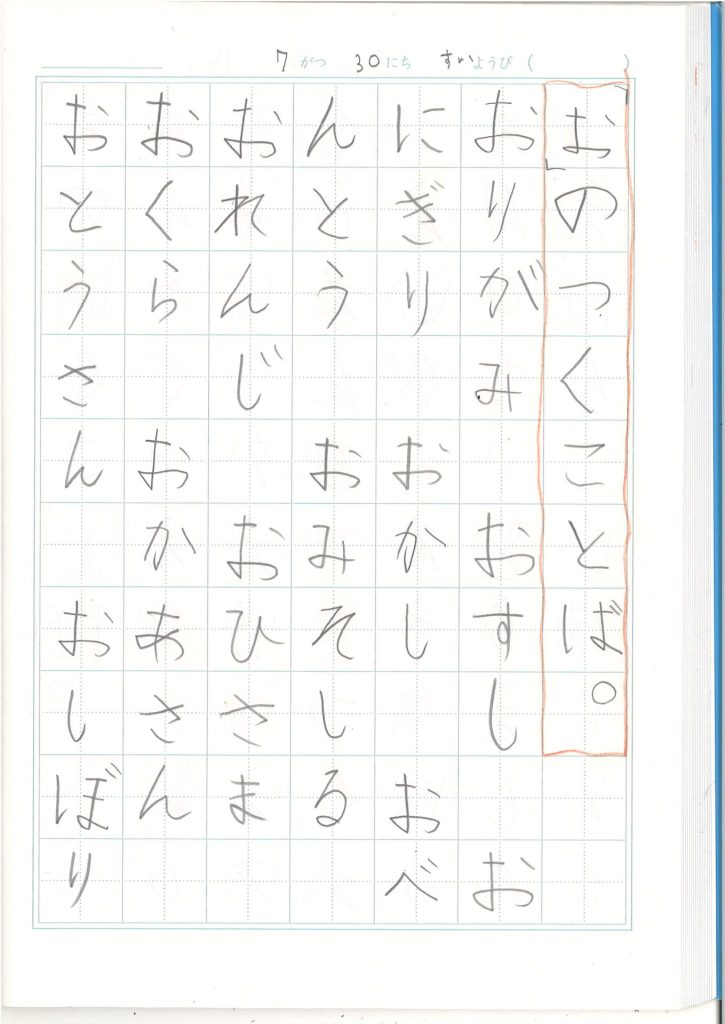 7がつ 30にち すいようび( )
「お」のつくことば。
おりがみ おすし お
にぎり おかし おべ
んとう おみそしる
おれんじ おひさま
おくら おかあさん
おとうさん おしぼり